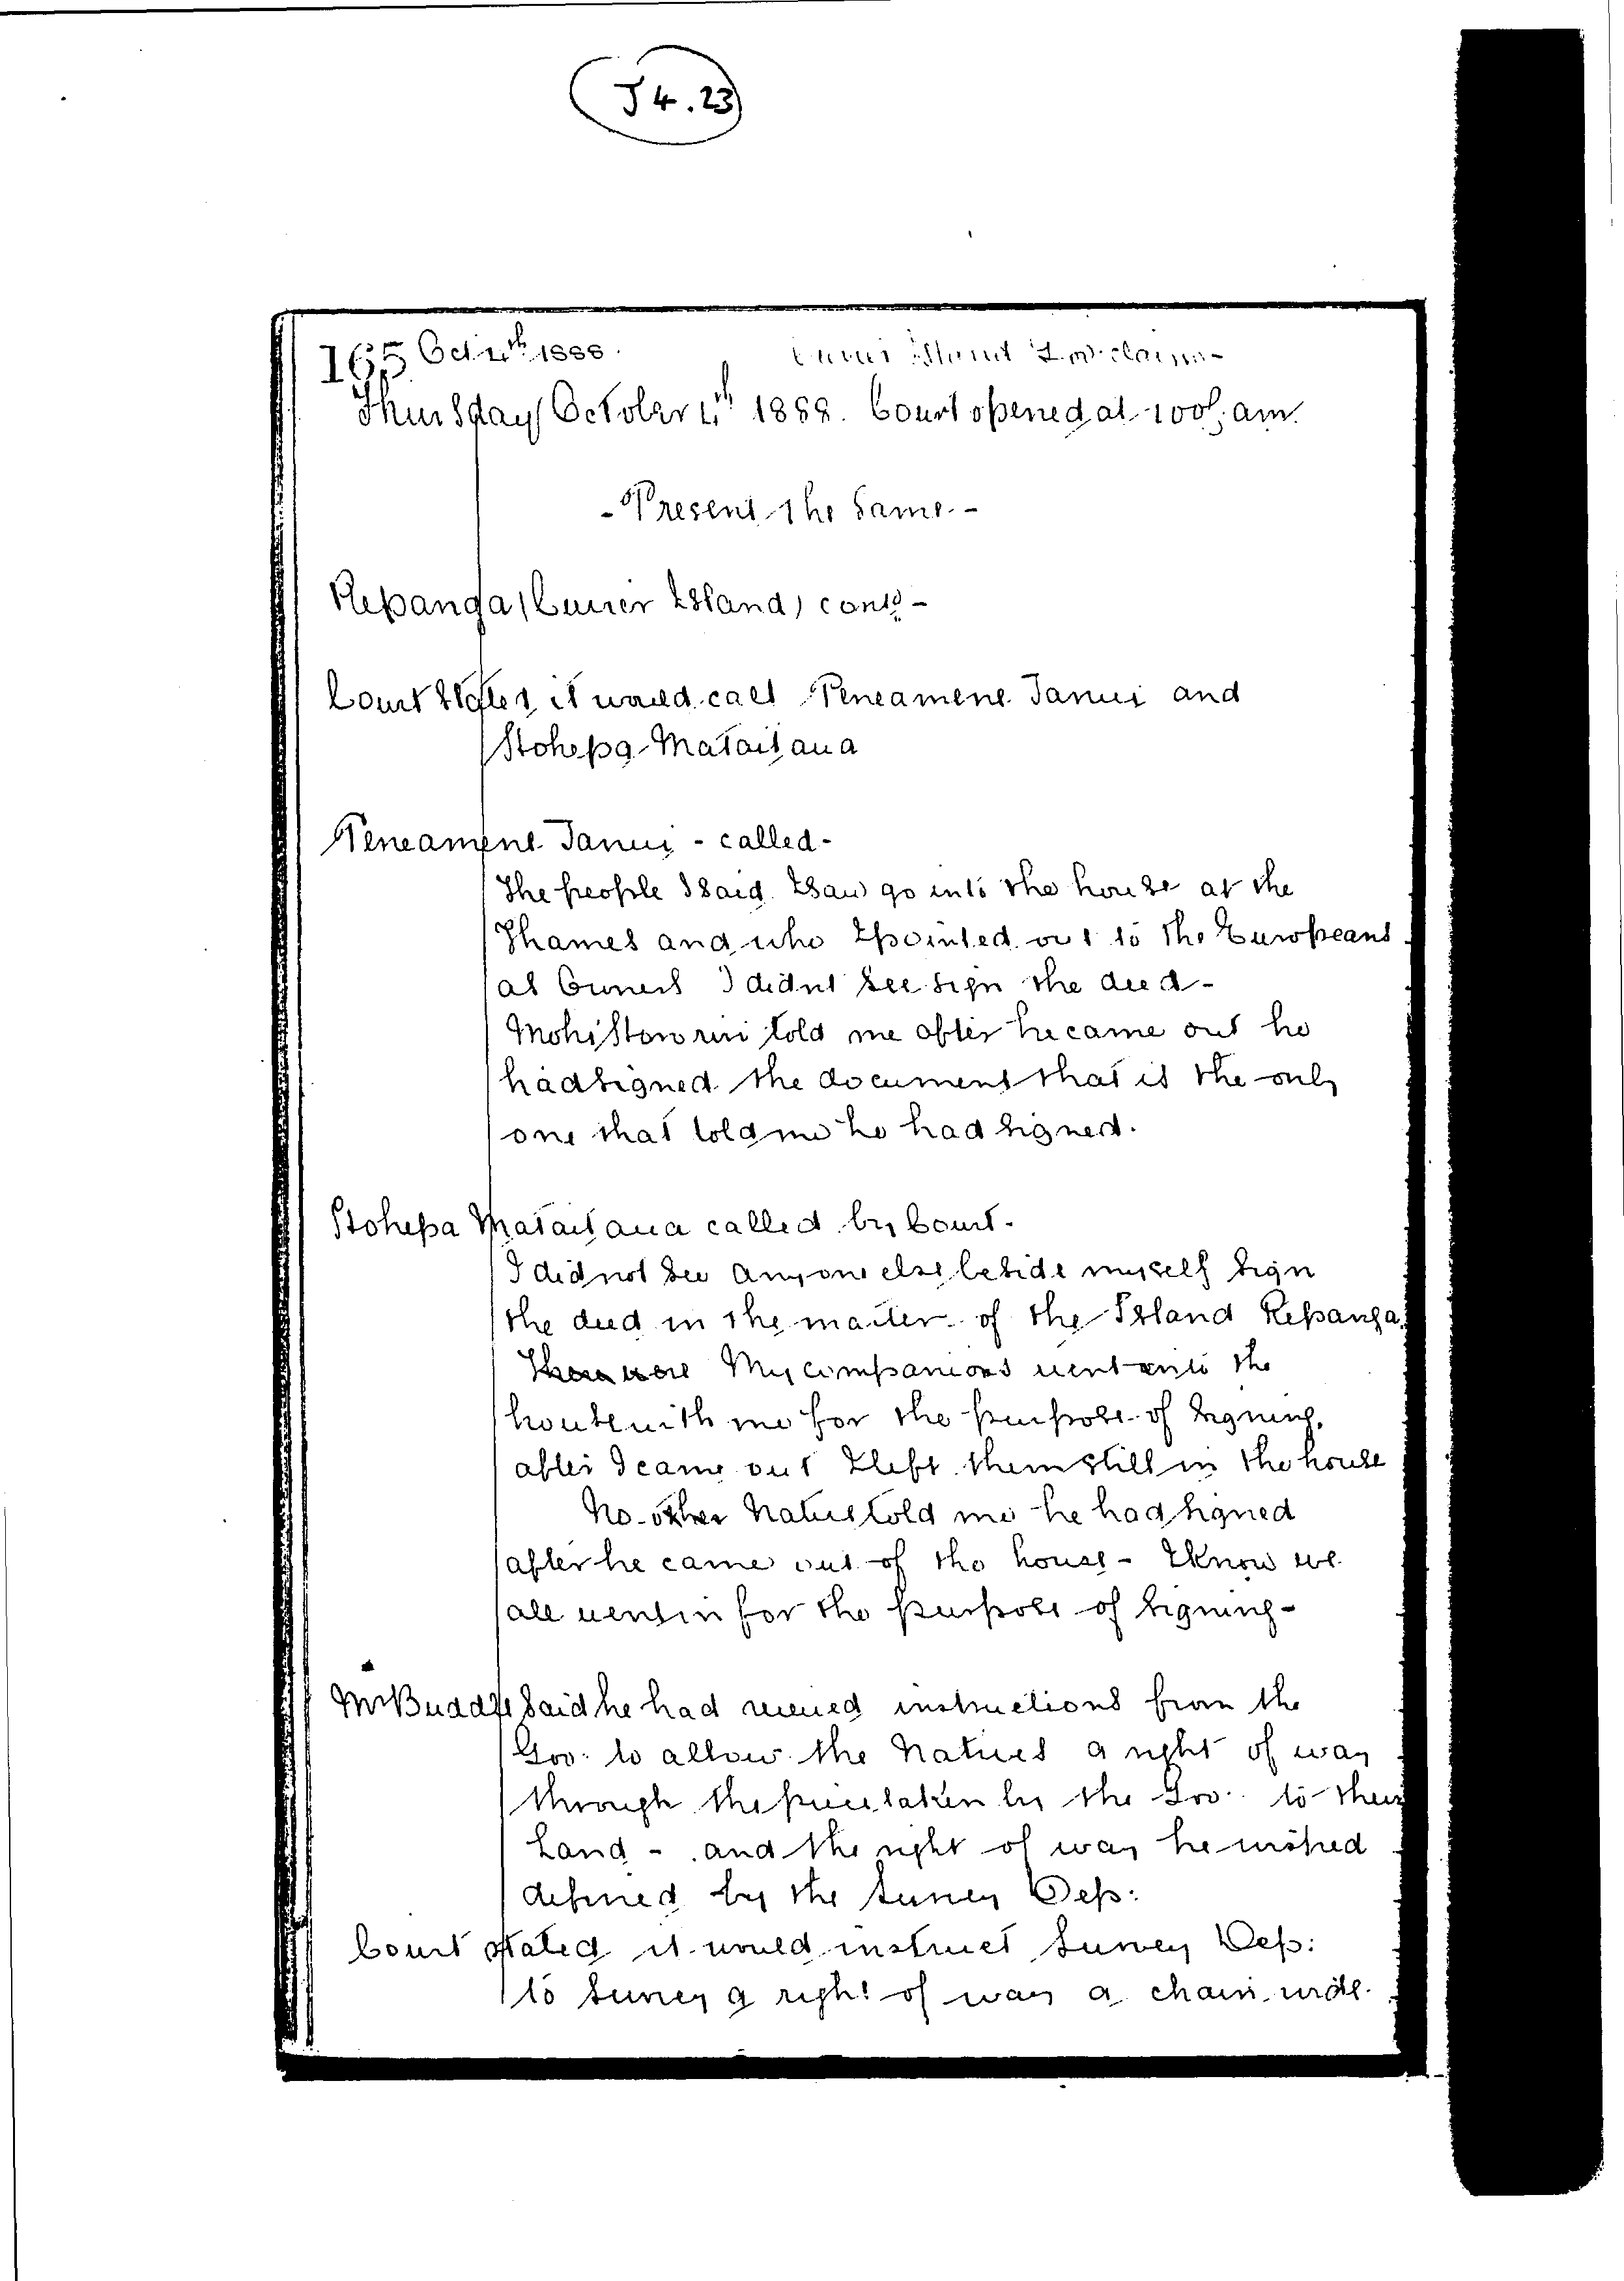 J4.23
165 Oct 4th 1888. Cuvier Island Gov. claim -
Thursday October 4th 1888. Court opened at 10 o/c am.
- Present the Same. -
Repanga (Cuvier Island) contd -
Court States it would call Peneamene Tanui and
Hohepa Mataitaua
Peneamene Tanui - called -
The people I said I saw go into the house at the
Thames and who I pointed out to the Europeans
as Owners I didnt see sign the deed -
told me after he came out he
had signed the document that is the only
one that told me he had signed.
Hohepa Mataitaua called by Court.
I did not see anyone else beside myself sign
the deed in the matter of the Island Repanga.
My companions went into the
house with me for the purpose of signing,
after I came out I left them still in the house
No other Native told me he had signed
after he came out of the house - I know we
all went in for the purpose of signing -
Mr Buddle said he had received instructions from the
Gov: to allow the Natives a right of way
through the piece taken by the Gov: to their
Land - and the right of way he wished
defined by the Survey Dep:
Court stated it would instruct Survey Dep:
to survey a right of way a chain wide.